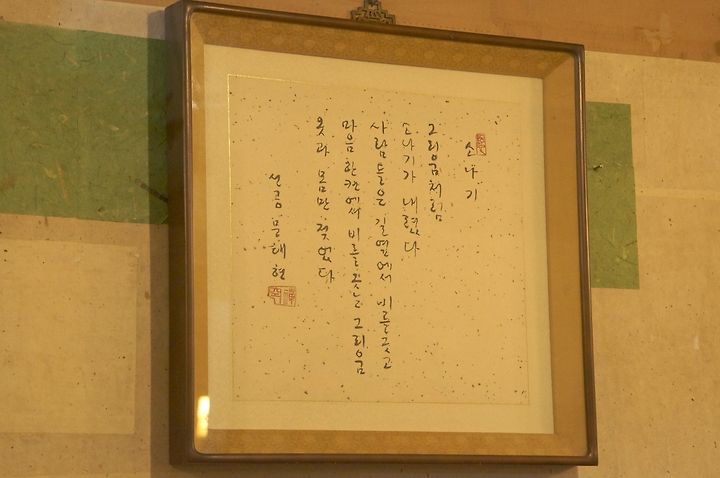 소나기
그리움처럼
소나기가 내렸다
사람들은 길옆에서 비를 긋고
마음 한칸에서 비를 긋는 그리움
옷과 몸만 젖었다
선금 문대현